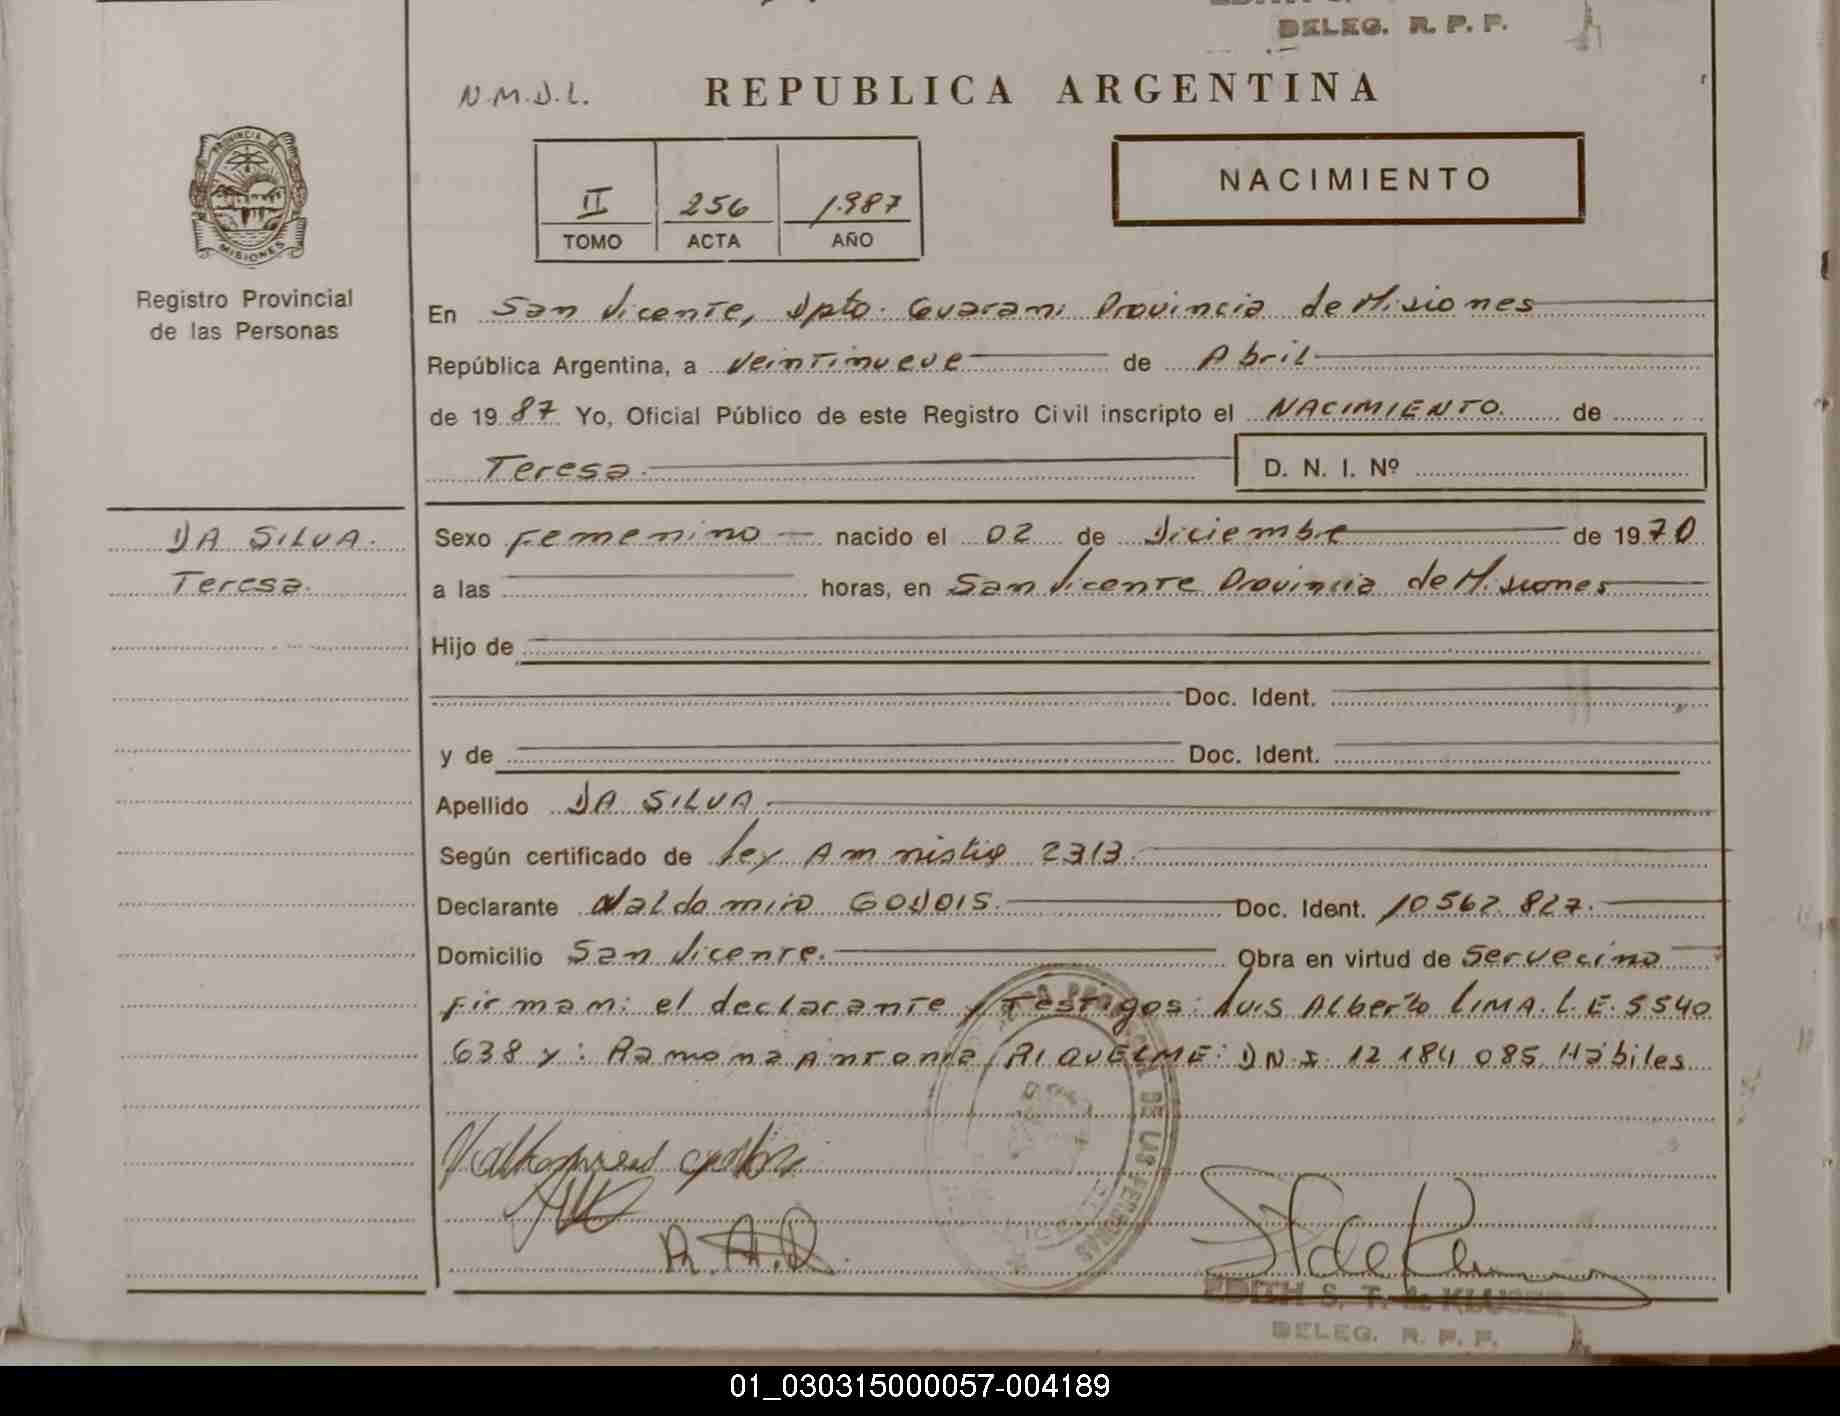 DELEG. R. P. P.
N.M.D.L.
REPUBLICA ARGENTINA
PROVINCIA DE
MISIONES
Registro Provincial
de las Personas
II 256 1.987
TOMO ACTA AÑO
NACIMIENTO
En San Vicente, Dpto. Guarani Provincia de Misiones
República Argentina, a veintinueve de Abril
de 1987 Yo, Oficial Público de este Registro Civil inscripto el NACIMIENTO. de
Teresa. D. N. I. Nº
DA SILVA.
Teresa.
Sexo Femenino nacido el 02 de Diciembre de 1970
a las horas, en San Vicente Provincia de Misiones
Hijo de
Doc. Ident.
y de Doc. Ident.
Apellido DA SILVA.
Según certificado de Ley Amnistia 2313.
Declarante Waldomiro GODOIS. Doc. Ident. 10562 827.
Domicilio San Vicente. Obra en virtud de Servecino
Firman: el declarante y Testigos: Luis Alberto LIMA. L.E. 5540
638 y: Ramona Antonia RIQUELME: DN.I. 12 184 085. Hábiles
R.A.R.
DE LAS PERSONAS
EDITH S. T. de KLUSER
DELEG. R. P. P.
01_030315000057-004189